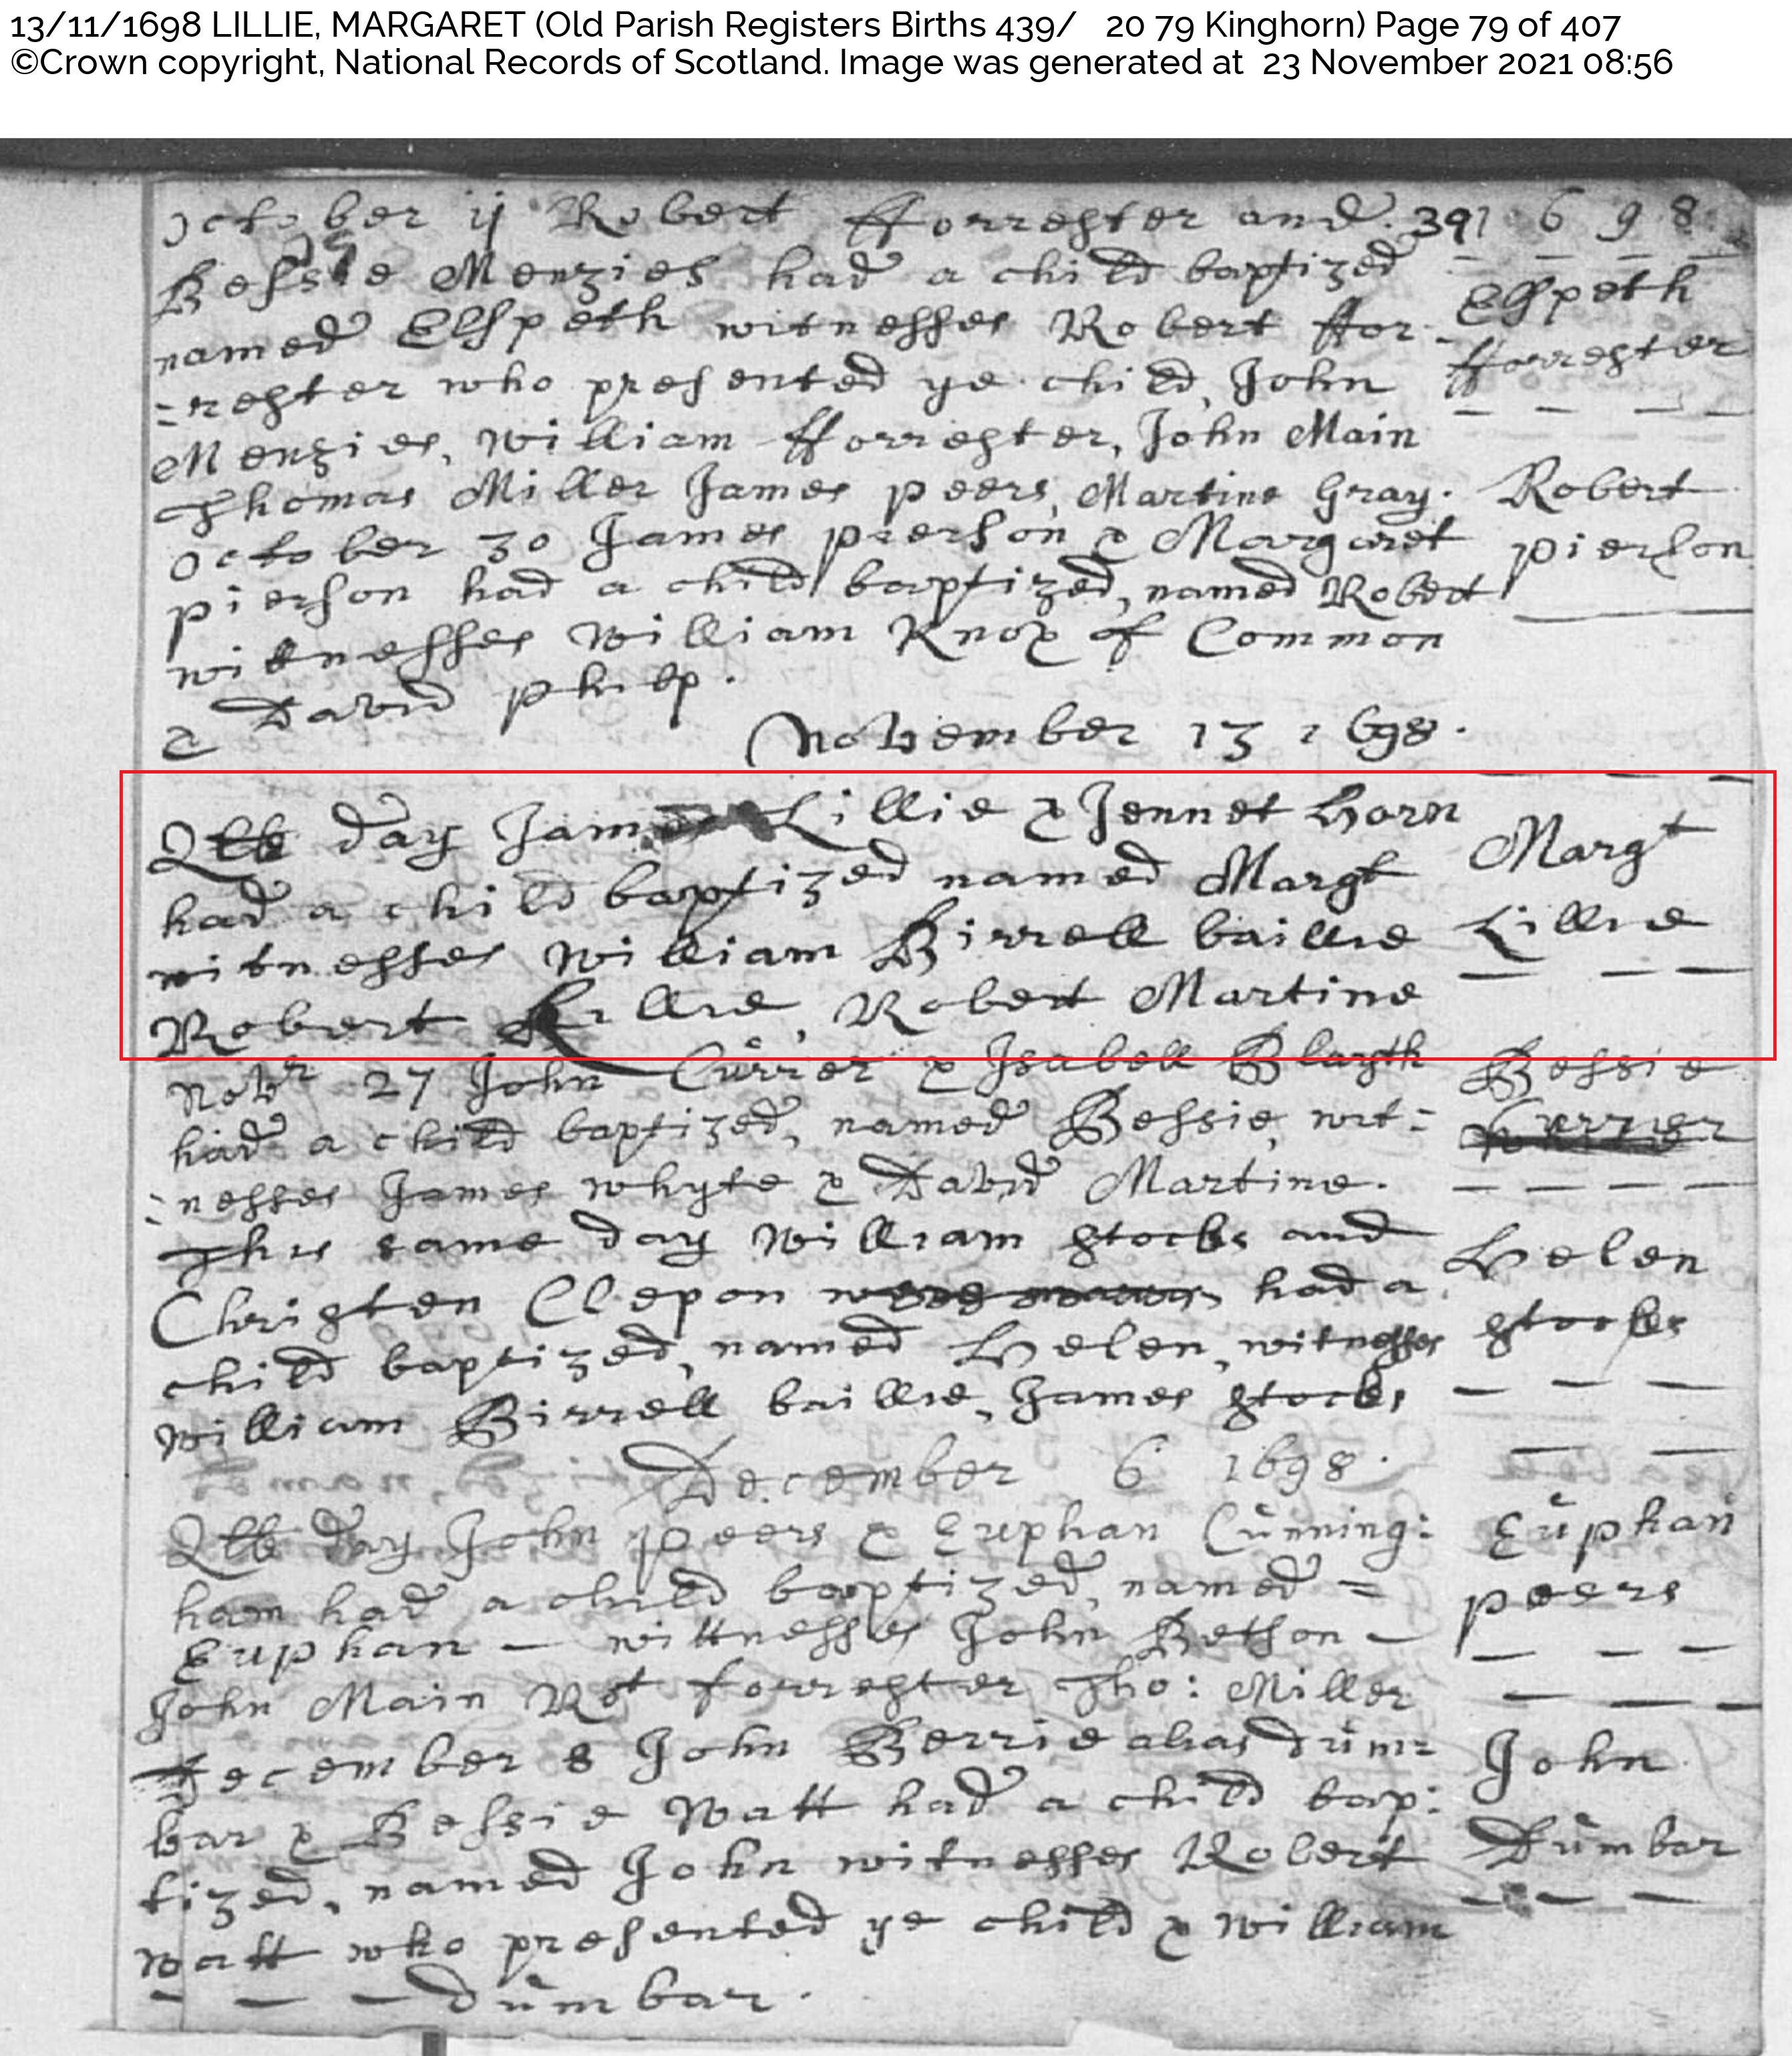 13/11/1698 LILLIE, MARGARET (Old Parish Registers Births 439/ 20 79 Kinghorn) Page 79 of 407
©Crown copyright, National Records of Scotland. Image was generated at 23 November 2021 08:56
October ij Robert fforrester and 39 1 6 9 8
Bessie Menzies had a child baptized
named Elspeth witnesses Robert ffor-
=rester who presented ye child, John
Menzies, William fforrester, John Main
Thomas Miller James peers, Martine Gray.
Elspeth
fforrester
October 30 James pierson & Margaret
pierson had a child baptized, named Robert
witnesses William Knox of Common
& David philp.
Robert
pierson
November 13 1698.
day James Lillie & Jennet Horn
had a child baptized named Margt
witnesses William Birrell baillie
Robert Lillie, Robert Martine
Margt
Lillie
Novr 27 John Currer & Isabell Blayth
had a child baptized, named Bessie, wit=
=nesses James whyte & David Martine.
Bessie
Currier
This same day William stocks and
Christen Clepon had a
child baptized, named Helen, witnesses
William Birrell baillie, James stocks
Helen
stocks
December 6 1698.
day John peers & Euphan Cunning:
ham had a child baptized, named =
Euphan — wittnesses John Betson —
John Main Rot forrester Tho: Miller
Euphan
peers
December 8 John Berrie alias dum=
bar & Bessie Watt had a child bap:
tized, named John witnesses Robert
Watt who presented ye child & William
— — — dumbar.
John
Dumbar